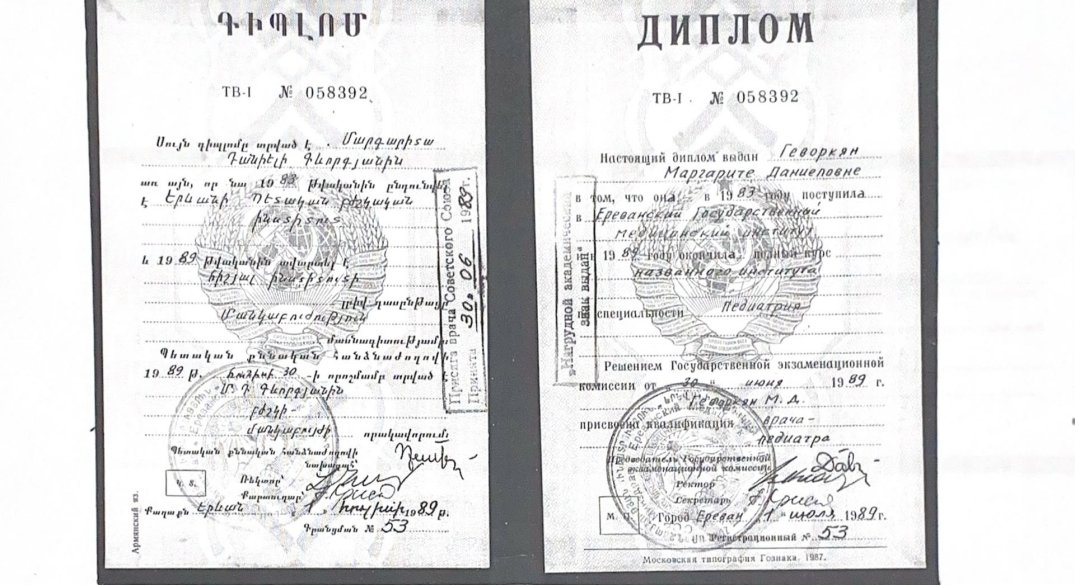 ԴԻՊԼՈՄ
ТВ-I № 058392
Սույն դիպլոմը տրված է Մարգարիտա
Դանիելի Գևորգյանին
առ այն, որ նա 1983 թվականին ընդունվել
է Երևանի Պետական բժշկական
ինստիտուտ
և 1989 թվականին ավարտել է
հիշյալ ինստիտուտի
լրիվ դասընթացը
Մանկաբուժություն
մասնագիտությամբ
Պետական քննական հանձնաժողովի
1989 թ. հունիսի 30 -ի որոշմամբ տրված է
Մ. Դ. Գևորգյանին
բժշկի
մանկաբույժի որակավորում:
Պետական քննական հանձնաժողովի
նախագահ՝
Ռեկտոր՝
Քարտուղար՝
Կ. Տ.
Քաղաք Երևան 1 հուլիսի 1989 թ.
Գրանցման № 53
Армянский яз.
Присяга врача Советского Союза
Принята 30 06 1989 г.
ДИПЛОМ
ТВ-I № 058392
Настоящий диплом выдан Геворкян
Маргарите Даниеловне
в том, что она в 1983 году поступила
в Ереванский Государственный
медицинский институт
и в 1989 году окончила полный курс
названного института
по специальности Педиатрия
Решением Государственной экзаменационной
комиссии от „30“ июня 1989 г.
Геворкян М. Д.
присвоена квалификация врача-
педиатра
Председатель Государственной
экзаменационной комиссии
Ректор
Секретарь
М. П.
Город Ереван 1 июля 1989 г.
Регистрационный № 53
Московская типография Гознака. 1987.
„Нагрудной академический
знак выдан“